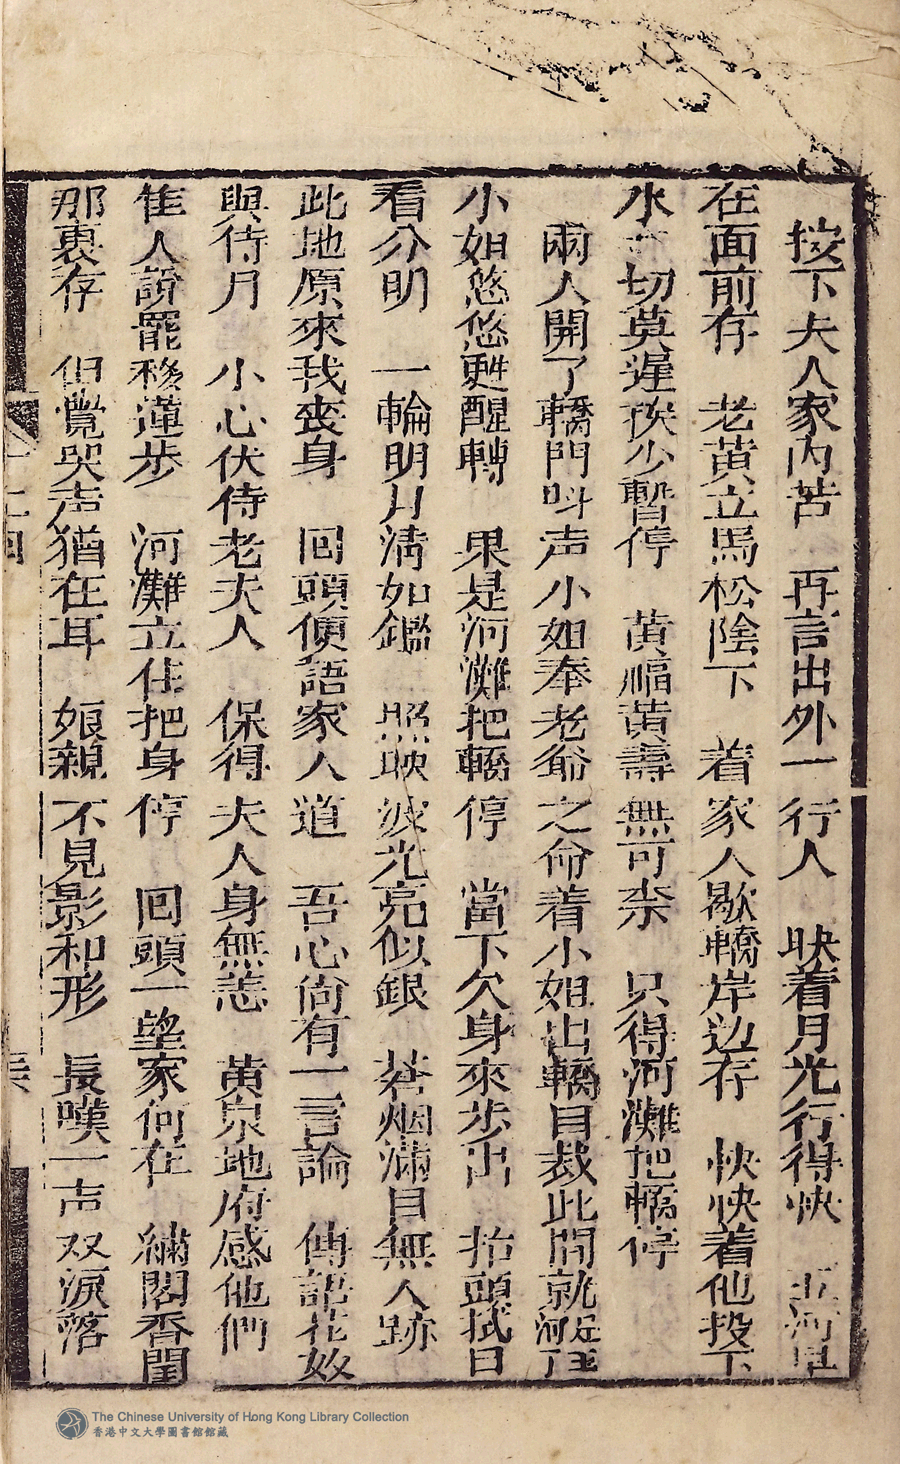 按下夫人家内苦　再言出外一行人　映着月光行得快　玉河早
在面前存　老黃立馬松陰下　着家人歇轎岸边存　快快着他投下
水　切莫遲挨少暫停　黃福黃壽無可奈　只得河灘把轎停
兩人開了轎門叫声小姐奉老爺之命着小姐出轎自裁此間就是玉河了
小姐悠悠甦醒轉　果是河灘把轎停　當下欠身來步出　抬頭拭目
看分明　一輪明月清如鑑　照映波光亮似銀　蒼烟滿目無人跡
此地原來我喪身　回頭便語家人道　吾心尙有一言論　傳語花奴
與待月　小心伏侍老夫人　保得夫人身無恙　黃泉地府感他們
隹人說罷移蓮步　河灘立住把身停　回頭一望家何在　繡閣香閨
那裏存　但覺哭声猶在耳　娘親不見影和形　長嘆一声双淚落
The Chinese University of Hong Kong Library Collection
香港中文大學圖書館館藏